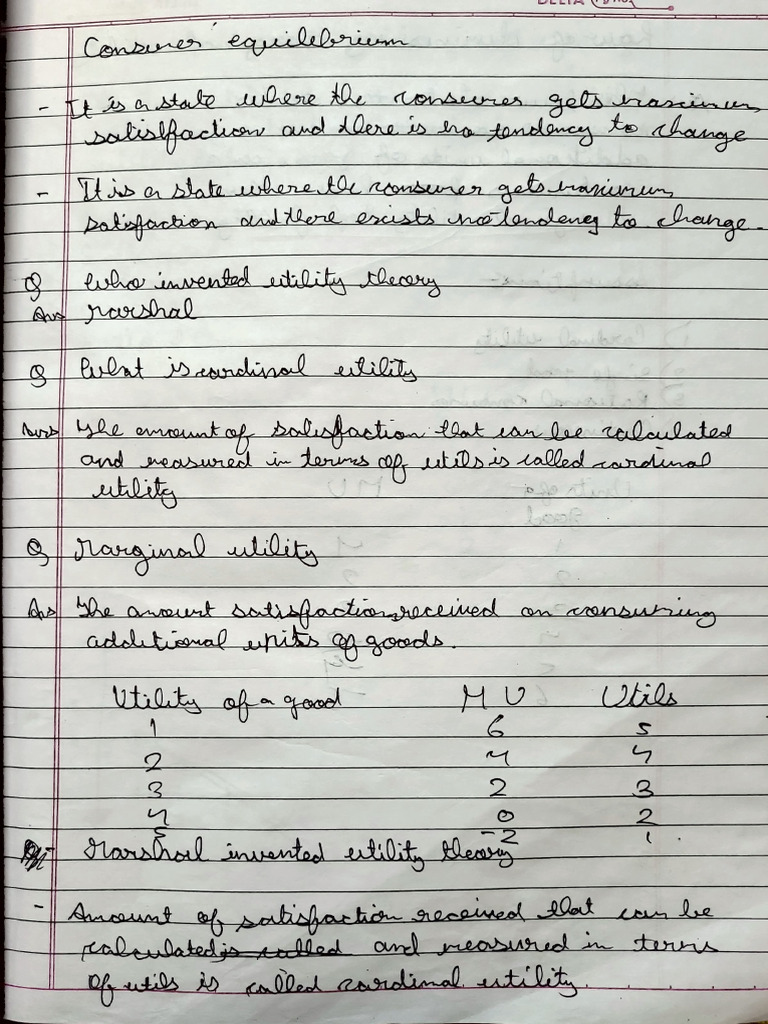 DELTA
Consumer equilebrium
- It is a state where the consumer gets maximum
satisfaction and there is no tendency to change
- It is a state where the consumer gets maximum
satisfaction and there escists no tendency to change.
Q Who invented utility theory
Ans Marshal
Q What is cardinal utility
Ans The amount of satisfaction that can be calculated
and measured in terms of utils is called cardinal
utility
Q Marginal utility
Ans The amount satisfaction received on consuming
additional units of goods.
Utility of a good MU Utils
1 6 5
2 4 4
3 2 3
4 0 2
5 -2 1
Marshall invented utility theory
- Amount of satisfaction received that can be
calculated is called and measured in terms
of utils is called cardinal utility.